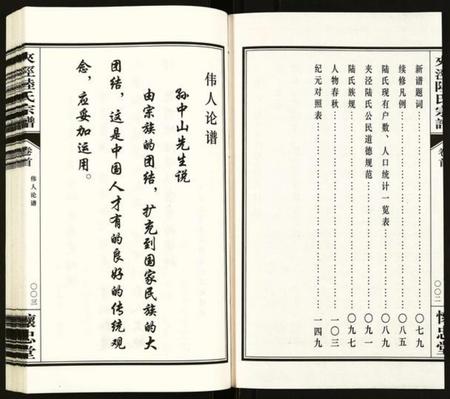 夾涇陸氏宗譜
卷首
〇〇二
懷忠堂
新谱题词……〇七九
续修凡例……〇八五
陆氏现有户数、人口统计一览表……〇八九
夹泾陆氏公民道德规范……〇九一
陆氏族规……〇九七
人物春秋……一〇三
纪元对照表……一四九
伟人论谱
孙中山先生说
由宗族的团结，扩充到国家民族的大
团结，这是中国人才有的良好的传统观
念，应妥加运用。
夾涇陸氏宗譜
卷首
伟人论谱
〇〇三
懷忠堂